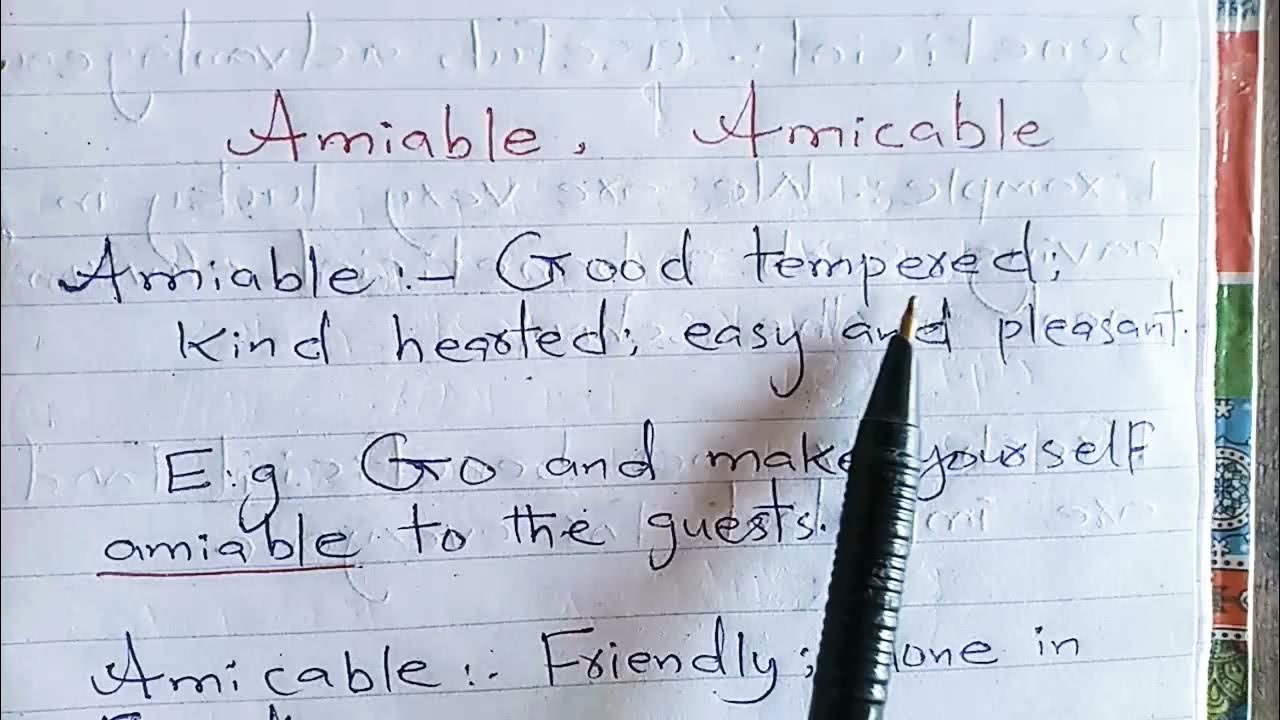 Amiable, Amicable
Amiable :- Good tempered;
Kind hearted; easy and pleasant.
E.g Go and make yourself
amiable to the guests.
Amicable :- Friendly; done in